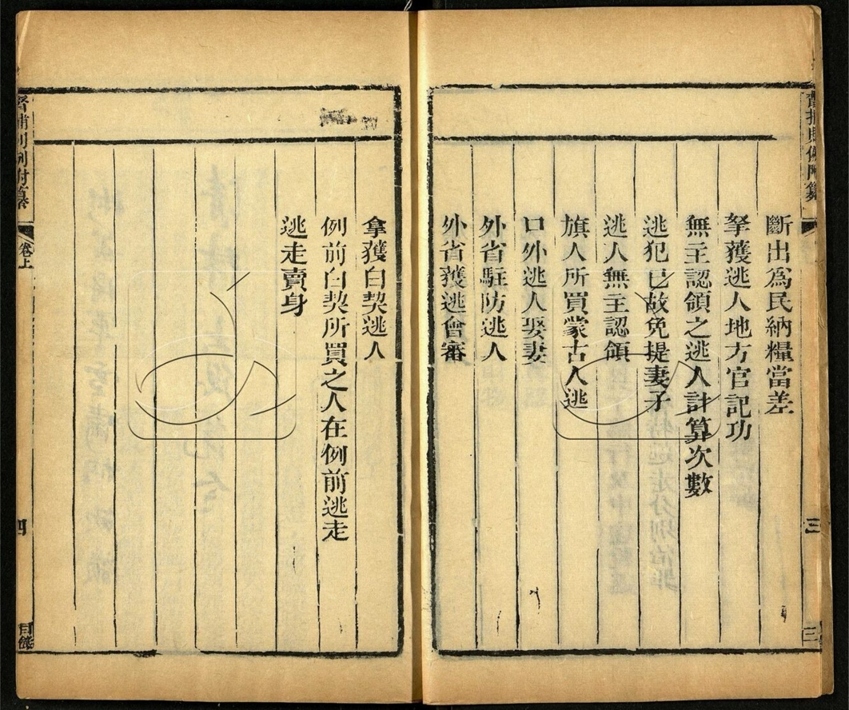 斷出爲民納糧當差
拏獲逃人地方官記功
無主認領之逃人計算次數
逃犯已故免提妻子
逃人無主認領
旗人所買蒙古人逃
口外逃人娶妻
外省駐防逃人
外省獲逃會審
三
拿獲白契逃人
例前白契所買之人在例前逃走
逃走賣身
督捕則例附纂
卷上
四
目錄